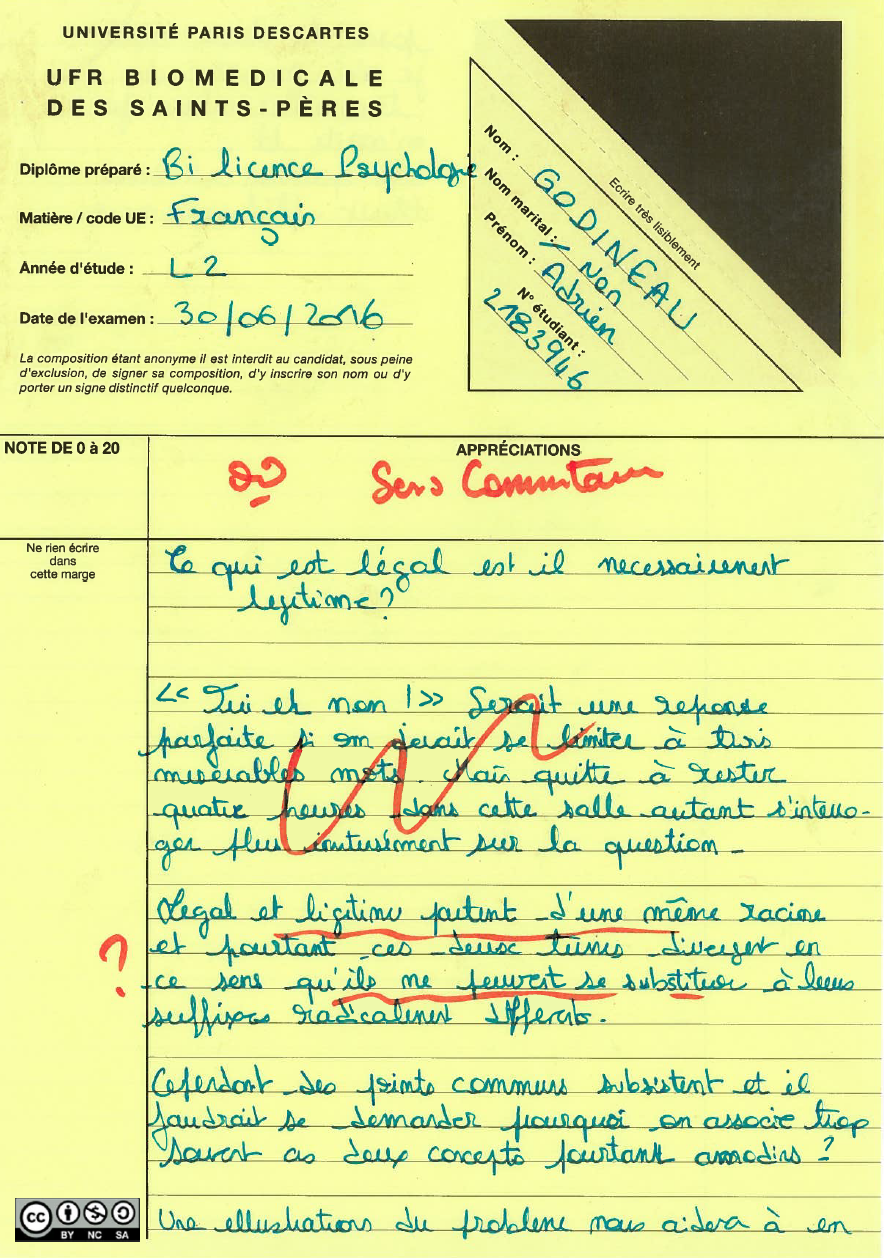 UNIVERSITÉ PARIS DESCARTES
UFR BIOMEDICALE
DES SAINTS-PÈRES
Diplôme préparé : Bi licence Psychologie
Matière / code UE : Français
Année d'étude : L2
Date de l'examen : 30/06/2016
La composition étant anonyme il est interdit au candidat, sous peine
d'exclusion, de signer sa composition, d'y inscrire son nom ou d'y
porter un signe distinctif quelconque.
Ecrire très lisiblement
Nom : GODINEAU
Nom marital : Non
Prénom : Adrien
N° étudiant :
2183946
NOTE DE 0 à 20
APPRÉCIATIONS
Sans Commentaire
Ne rien écrire
dans
cette marge
Ce qui est légal est il necessairement
legitime ?
<< Oui et non ! >> Serait une reponse
parfaite si on devait se limiter à trois
miserables mots. Mais quitte à rester
quatre heures dans cette salle autant s'interro-
ger plus sur la question -
Legal et legitime partent d'une même racine
?
et pourtant ces deux termes divergent en
ce sens qu'ils ne peuvent se substituer à leurs
suffixes radicalement differents.
Cependant des points communs subsistent et il
faudrait se demander pourquoi on associe trop
souvent ces deux concepts pourtant
?
Une ellustrations du probleme nous aidera à en
cc
BY NC SA